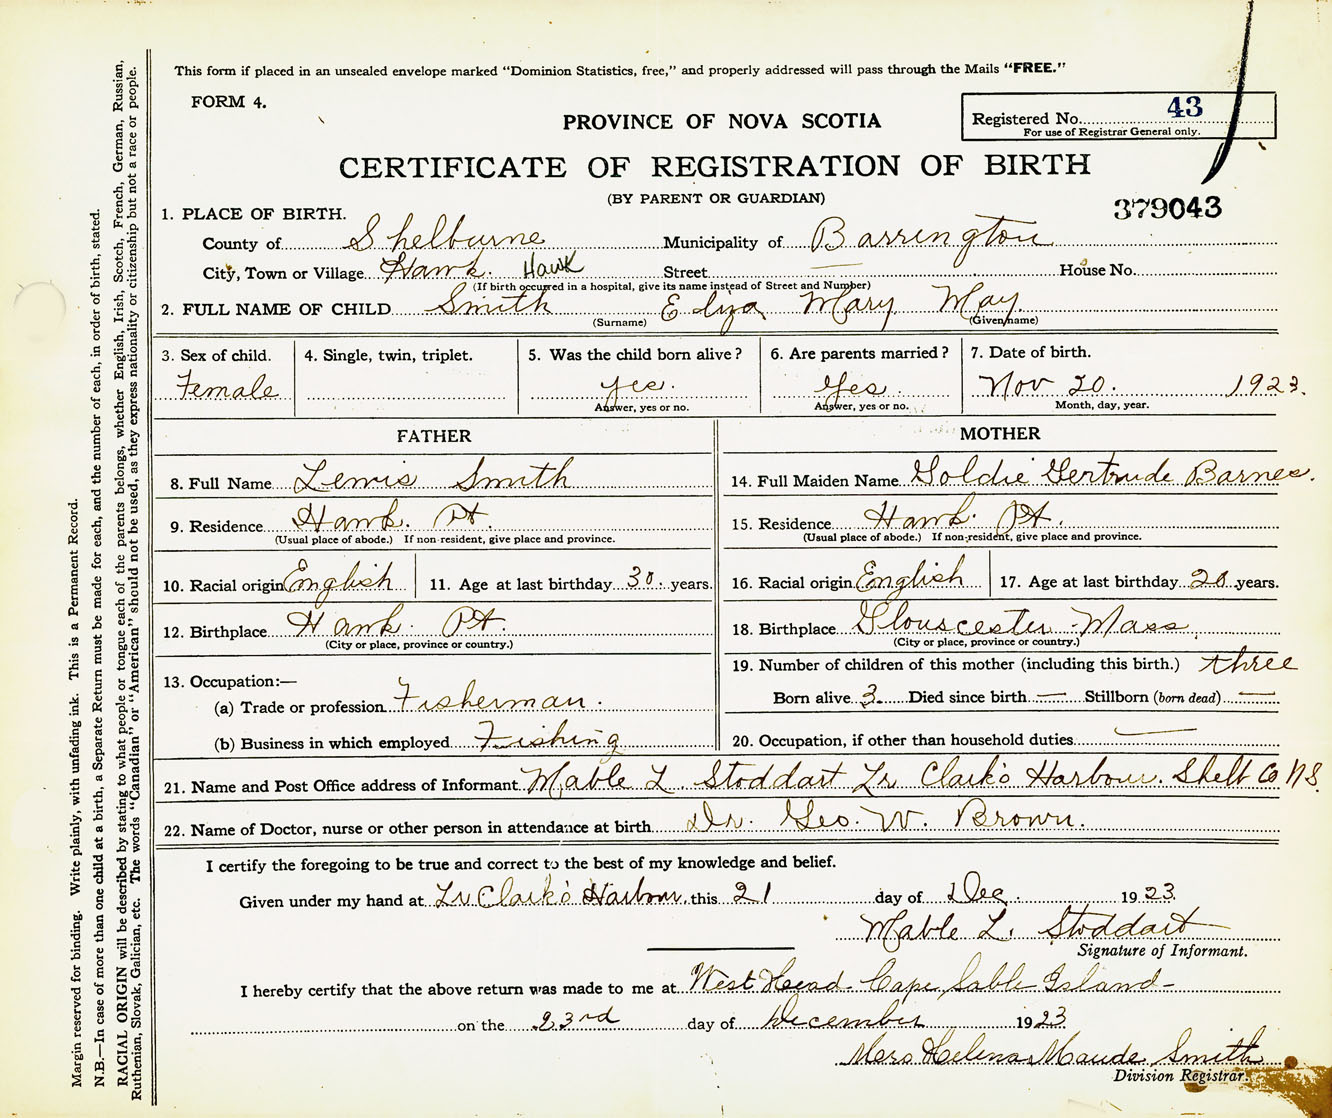 This form if placed in an unsealed envelope marked “Dominion Statistics, free,” and properly addressed will pass through the Mails “FREE.”
FORM 4.
PROVINCE OF NOVA SCOTIA
Registered No. 43
For use of Registrar General only.
CERTIFICATE OF REGISTRATION OF BIRTH
(BY PARENT OR GUARDIAN)
379043
1. PLACE OF BIRTH.
County of Shelburne Municipality of Barrington
City, Town or Village Hawk. Hawk Street — House No.
(If birth occurred in a hospital, give its name instead of Street and Number)
2. FULL NAME OF CHILD Smith Eliza Mary May
(Surname) (Given name)
3. Sex of child. 4. Single, twin, triplet. 5. Was the child born alive? 6. Are parents married? 7. Date of birth.
Female yes. Yes. Nov 20. 1923.
Answer, yes or no. Answer, yes or no. Month, day, year.
FATHER MOTHER
8. Full Name Lewis Smith 14. Full Maiden Name Goldie Gertrude Barnes.
9. Residence Hawk. Pt. 15. Residence Hawk. Pt.
(Usual place of abode.) If non-resident, give place and province. (Usual place of abode.) If non-resident, give place and province.
10. Racial origin English 11. Age at last birthday 30. years. 16. Racial origin English 17. Age at last birthday 20 years.
12. Birthplace Hawk. Pt. 18. Birthplace Gloucester Mass.
(City or place, province or country.) (City or place, province or country.)
19. Number of children of this mother (including this birth.) three
13. Occupation:—
(a) Trade or profession Fisherman. Born alive 3. Died since birth — Stillborn (born dead) —
(b) Business in which employed Fishing 20. Occupation, if other than household duties —
21. Name and Post Office address of Informant Mable L. Stoddart Lr. Clark's Harbour. Shelb Co N.S.
22. Name of Doctor, nurse or other person in attendance at birth Dr. Geo. W. Brown.
I certify the foregoing to be true and correct to the best of my knowledge and belief.
Given under my hand at Lr Clark's Harbour, this 21 day of Dec. 1923.
Mable L. Stoddart
Signature of Informant.
I hereby certify that the above return was made to me at West Head Cape Sable Island-
on the 23rd day of December 1923
Mrs Helena Maude Smith
Division Registrar.
Margin reserved for binding. Write plainly, with unfading ink. This is a Permanent Record.
N.B.—In case of more than one child at a birth, a Separate Return must be made for each, and the number of each, in order of birth, stated.
RACIAL ORIGIN will be described by stating to what people or tongue each of the parents belongs, whether English, Irish, Scotch, French, German, Russian,
Ruthenian, Slovak, Galician, etc. The words “Canadian” or “American” should not be used, as they express nationality or citizenship but not a race or people.